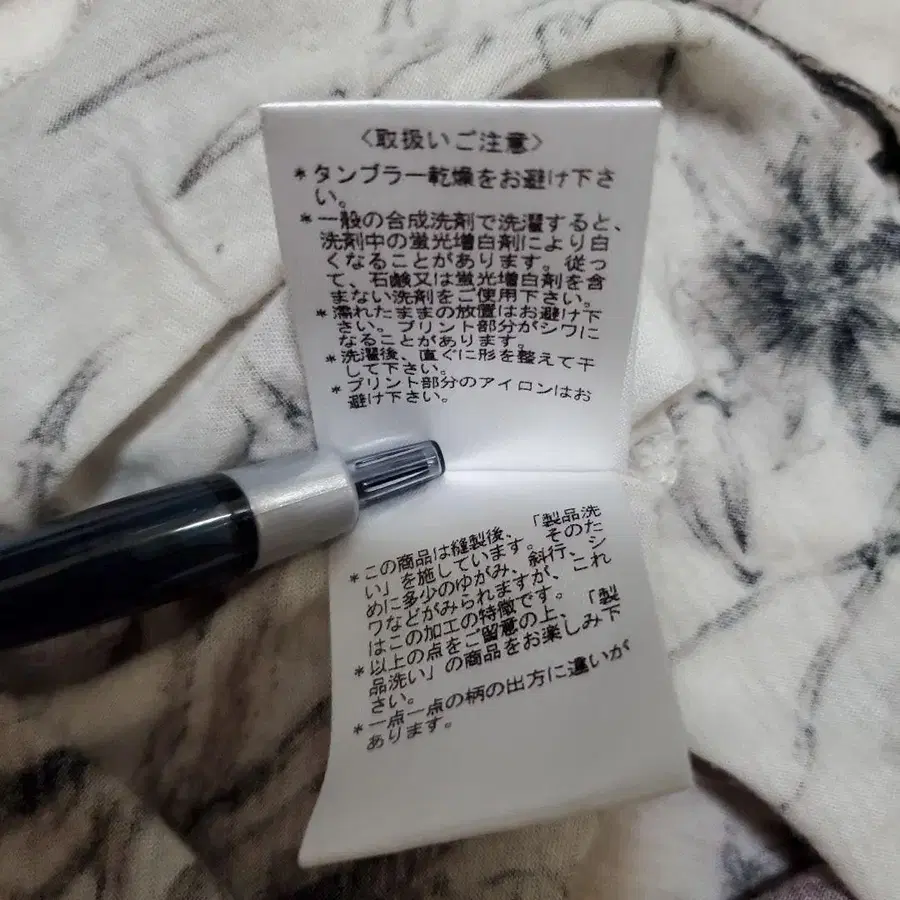 〈取扱いご注意〉
*タンブラー乾燥をお避け下さ
い。
*一般の合成洗剤で洗濯すると、
洗剤中の蛍光増白剤により白
くなることがあります。従っ
て、石鹸又は蛍光増白剤を含
まない洗剤をご使用下さい。
*濡れたままの放置はお避け下
さい。プリント部分がシワに
なることがあります。
*洗濯後、直ぐに形を整えて干
して下さい。
*プリント部分のアイロンはお
避け下さい。
*この商品は縫製後、「製品洗
い」を施しています。そのた
めに多少のゆがみ、斜行、シ
ワなどがみられますが、これ
はこの加工の特徴です。
*以上の点をご留意の上、「製
品洗い」の商品をお楽しみ下
さい。
*一点一点の柄の出方に違いが
あります。